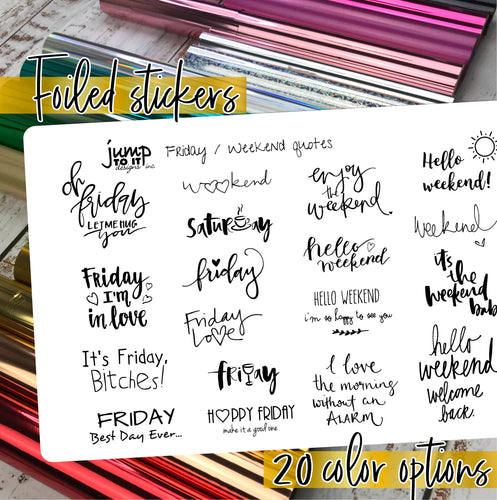 Foiled stickers
jump
TO IT
designs inc.
Friday / Weekend quotes
oh
friday
LET ME HUG
you
weekend
SATURDAY
friday
Friday
Love
FRIDAY
HAPPY FRIDAY
make it a good one.
Friday
I'm
in love
It's Friday,
Bitches!
FRIDAY
Best Day Ever...
enjoy
the
weekend.
hello
weekend
HELLO WEEKEND
i'm so happy to see you
I love
the morning
without an
ALARM.
Hello
weekend!
Weekend
it's
the
weekend
bab
hello
weekend
welcome
back.
20 color options